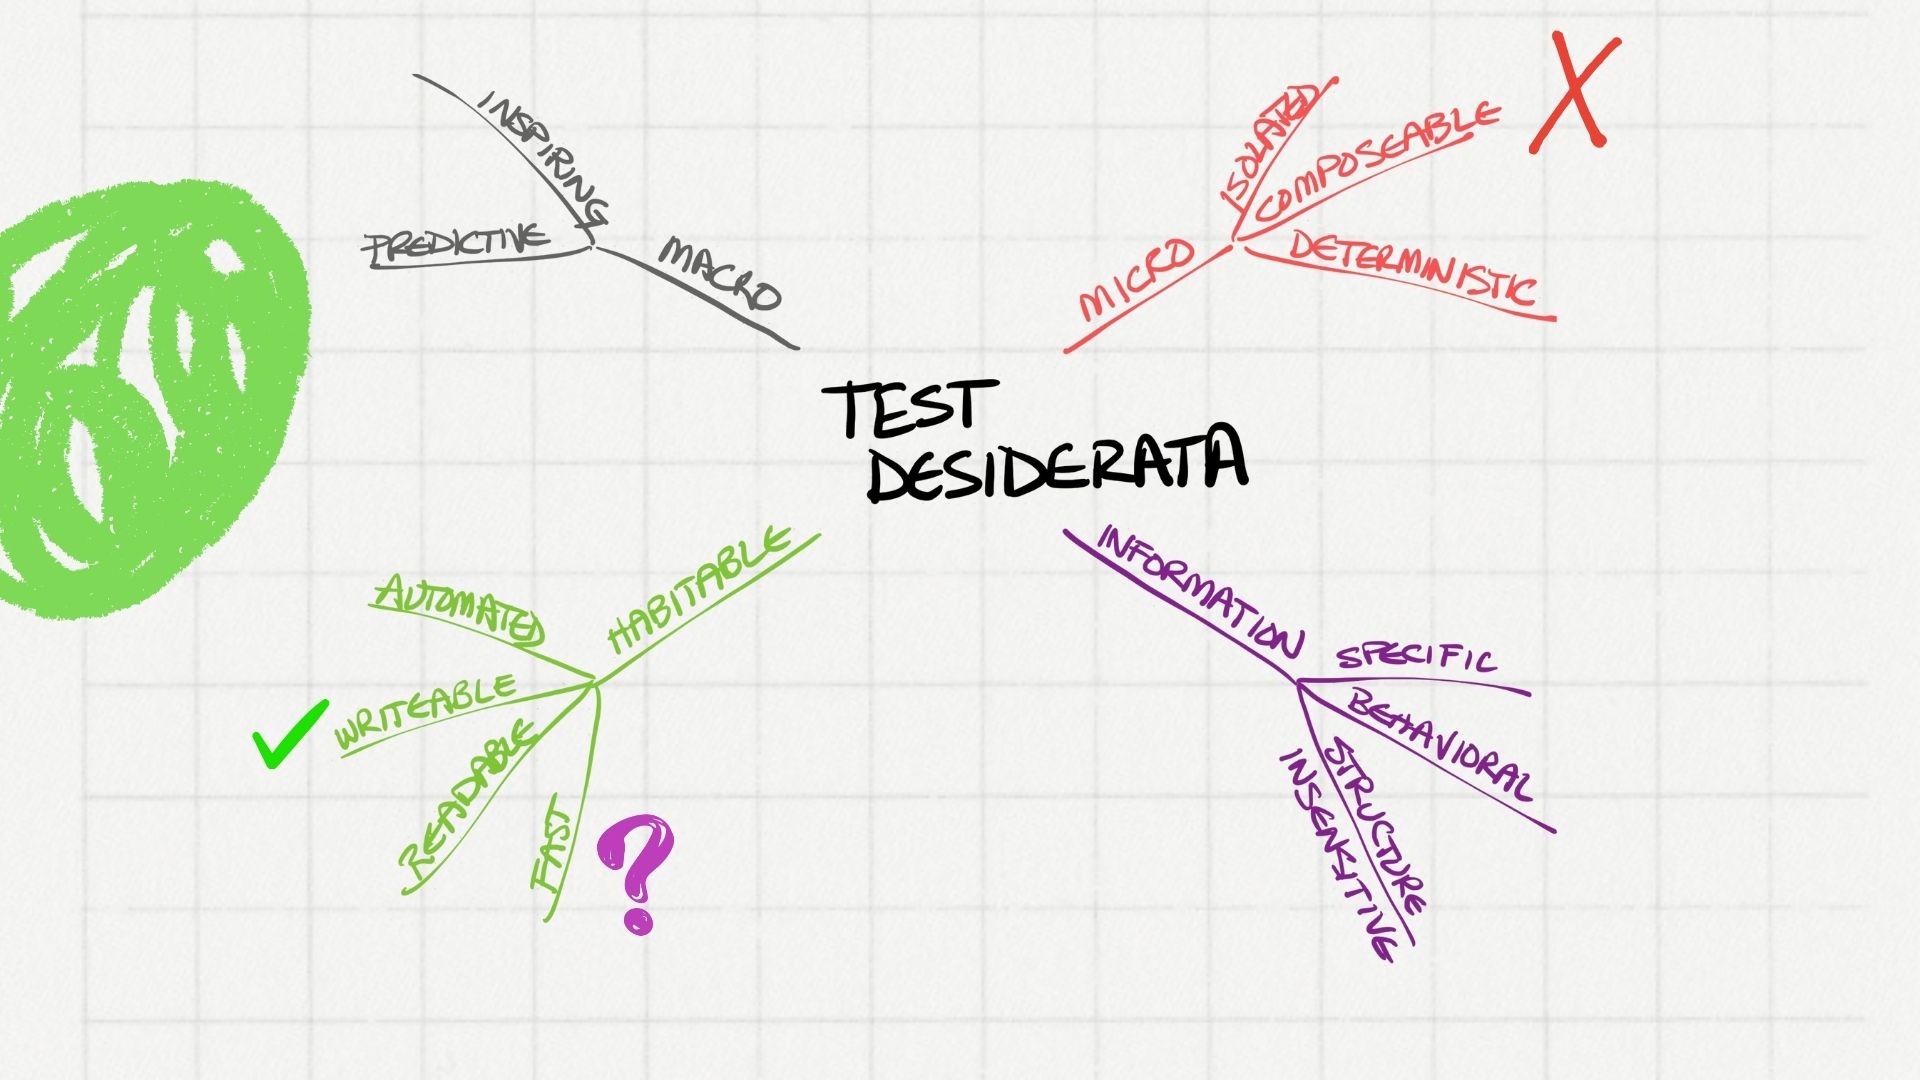 TEST
DESIDERATA
MACRO
INSPIRING
PREDICTIVE
MICRO
ISOLATED
COMPOSEABLE
DETERMINISTIC
X
HABITABLE
AUTOMATED
WRITEABLE
READABLE
FAST
?
INFORMATION
SPECIFIC
BEHAVIORAL
STRUCTURE
INSENSITIVE